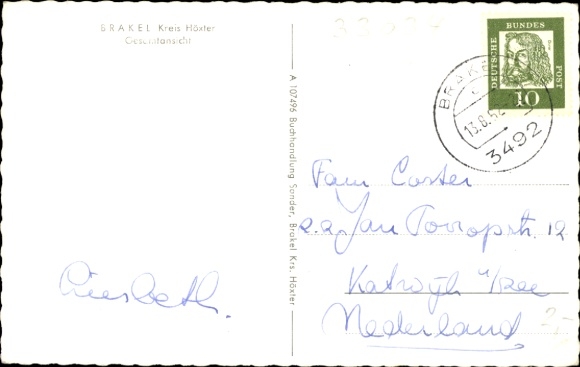 BRAKEL Kreis Höxter
Gesamtansicht
Liesbeth.
A 107496 Buchhandlung Sonder, Brakel Krs. Höxter
DEUTSCHE BUNDES POST
10
BRAKEL
13.8.62
3492
Fam Corter
a.a Jan Tooropstr. 12
Katwijk a/zee
Nederland